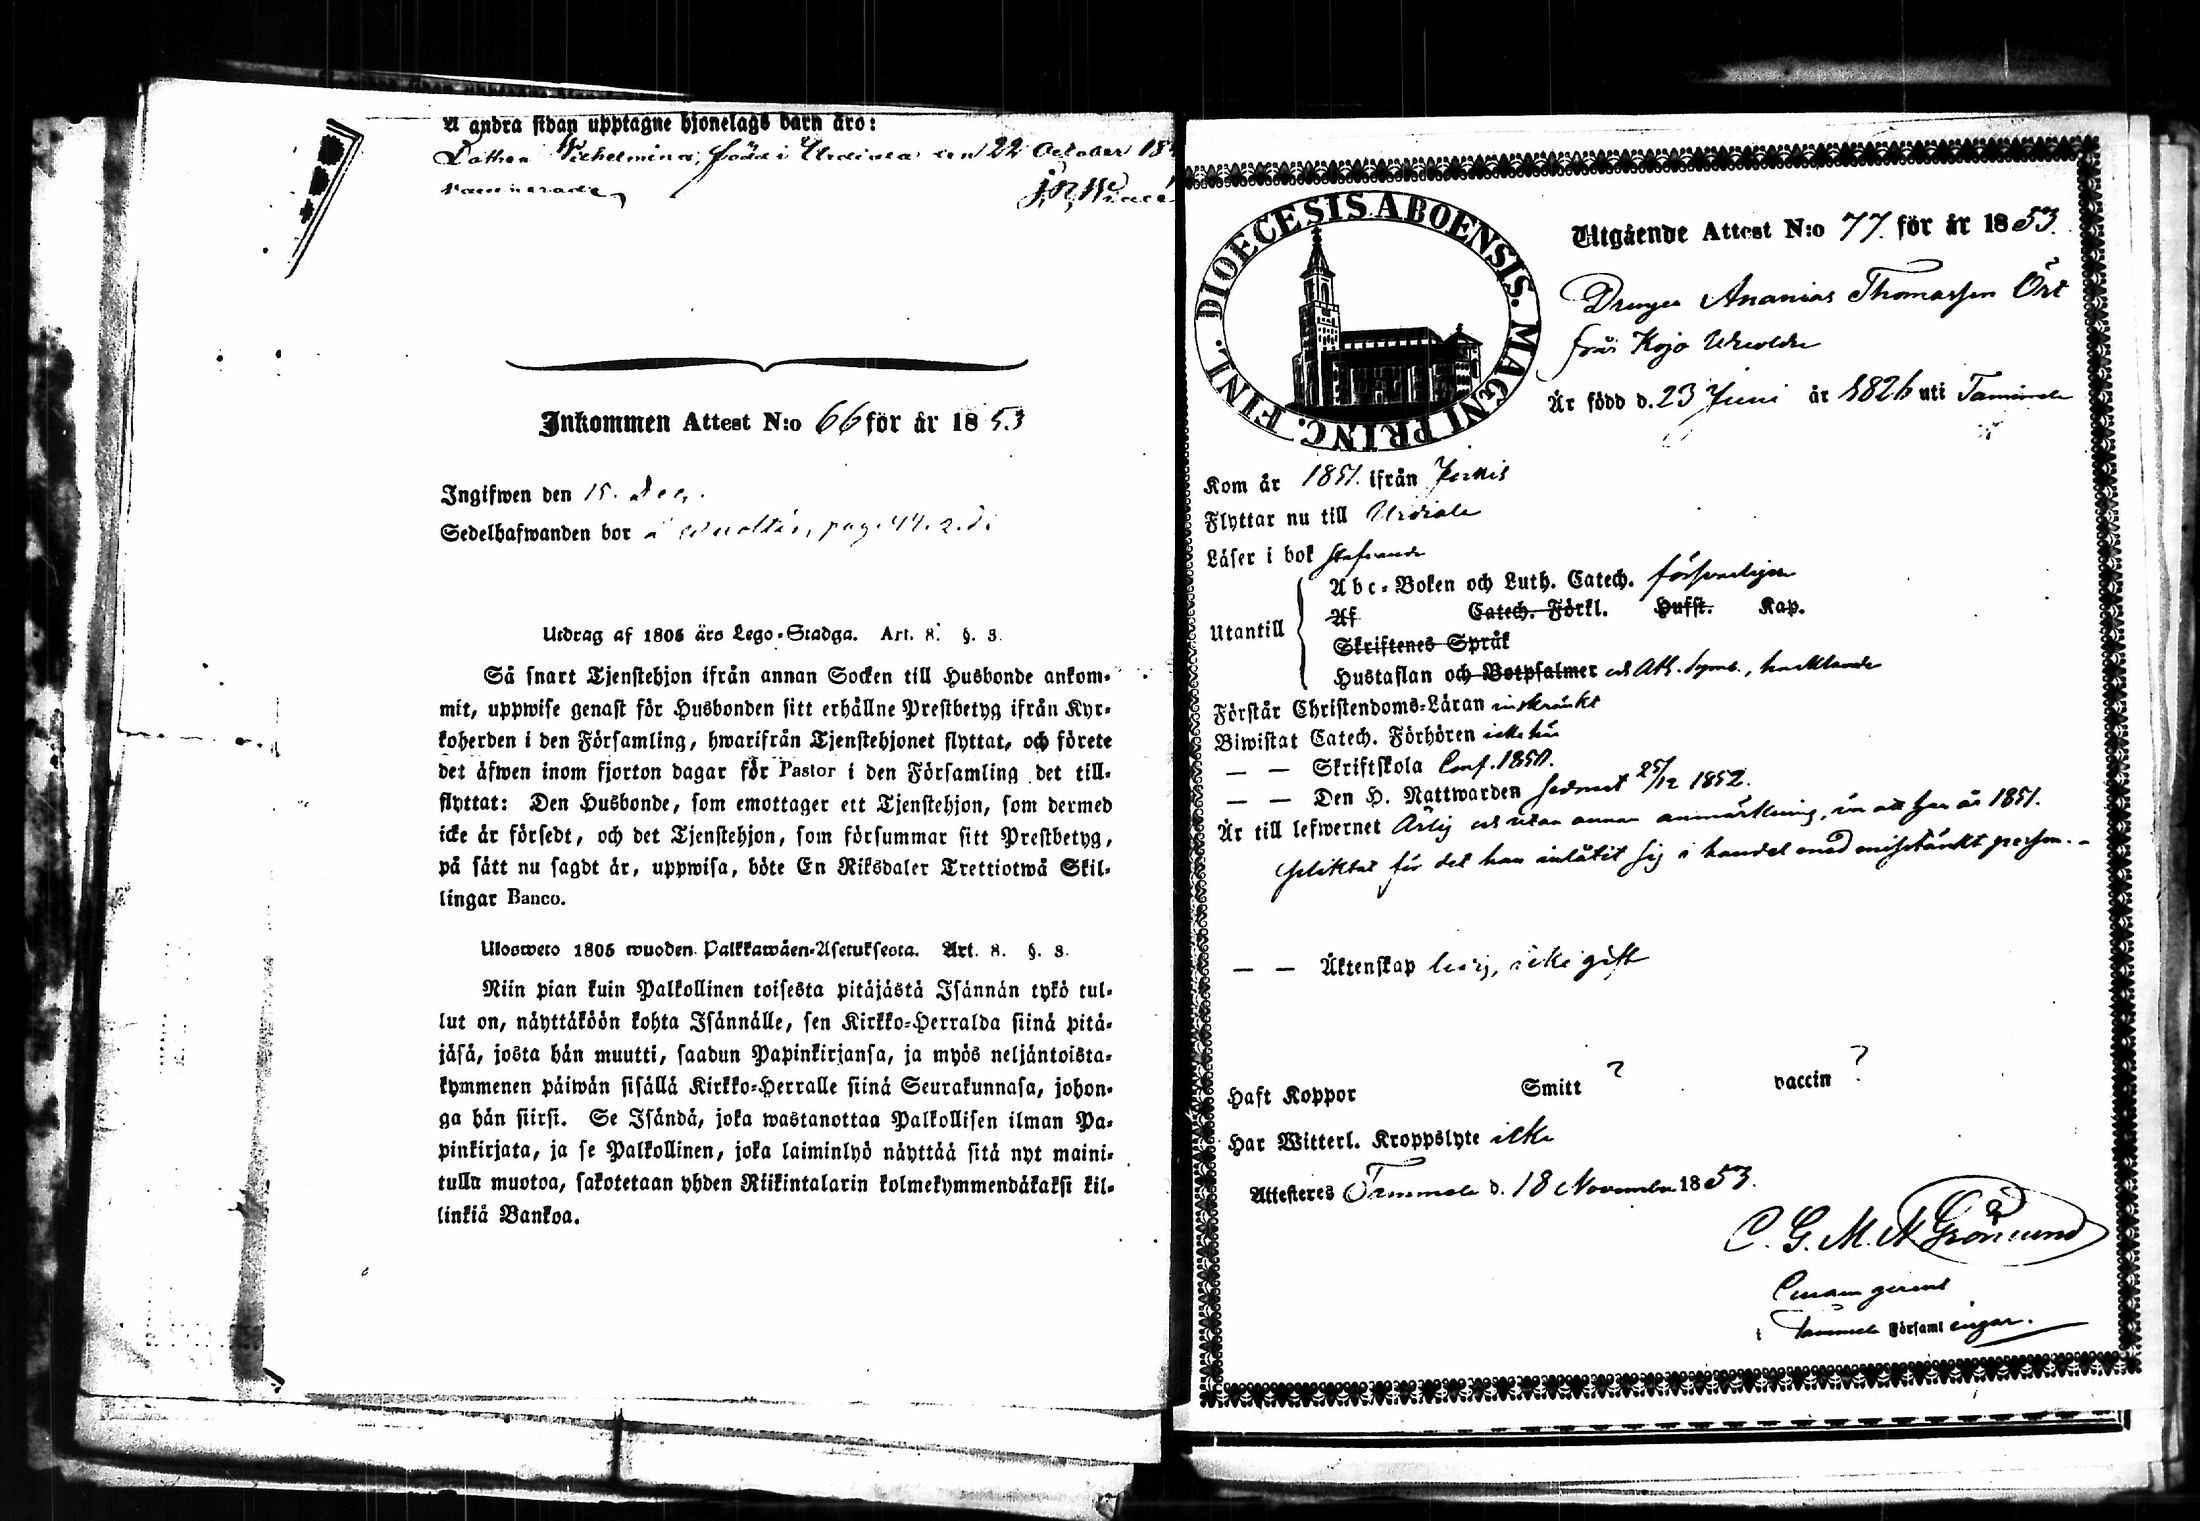 A andra sidan upptagne hjonelags barn äro:
Dottren Wilhelmina, född i Urdiala den 22 October 18
vaccinerade
Inkommen Attest N:o 66 för år 1853
Ingifwen den 15. Dec.
Sedelhafwanden bor å pag. 44. 2. d.
Utdrag af 1805 års Lego-Stadga. Art. 8. §. 3.
Så snart Tjenstehjon ifrån annan Socken till Husbonde ankom-
mit, uppwise genast för Husbonden sitt erhållne Prestbetyg ifrån Kyr-
koherden i den Församling, hwarifrån Tjenstehjonet flyttat, och förete
det äfwen inom fjorton dagar för Pastor i den Församling det till-
flyttat: Den Husbonde, som emottager ett Tjenstehjon, som dermed
icke är försedt, och det Tjenstehjon, som försummar sitt Prestbetyg,
på sätt nu sagdt är, uppwisa, böte En Riksdaler Trettiotwå Skil-
lingar Banco.
Ulosweto 1805 wuoden Palkkawäen-Asetuksesta. Art. 8. §. 3.
Niin pian kuin Palkollinen toisesta pitäjästä Isännän tykö tul-
lut on, näyttäköön kohta Isännälle, sen Kirkko-Herralda siinä pitä-
jäsä, josta hän muutti, saadun Papinkirjansa, ja myös neljäntoista-
kymmenen päiwän sisällä Kirkko-Herralle siinä Seurakunnasa, johon-
ga hän siirsi. Se Isändä, joka wastanottaa Palkollisen ilman Pa-
pinkirjata, ja se Palkollinen, joka laiminlyö näyttää sitä nyt maini-
tulla muotoa, sakotetaan yhden Riikintalarin kolmekymmendäkaksi kil-
linkiä Bankoa.
DIOECESIS ABOENSIS. MAGNI PRINC. FINL.
Utgående Attest N:o 77. för år 1853.
Drengen Ananias Thomasson Ört
från Kojo
Är född d. 23 Juni år 1826 uti Tammela
Kom år 1851. ifrån Jockis
Flyttar nu till Urdiala
Läser i bok stafvande
Utantill
Abc-Boken och Luth. Catech. försvarligen
Af Catech. Förkl. Hufst. Kap.
Skriftenes Språk
Hustaflan och Botpsalmer och Ath. Symb., hacklande
Förstår Christendoms-Läran inskränkt
Biwistat Catech. Förhören icke här
— — Skriftskola Conf. 1850.
— — Den H. Nattwarden sednast 25/12 1852.
Är till lefwernet Ärlig och utan annan anmärkning, än att han år 1851.
pliktat för det han inlåtit sig i handel med misstänkt person. -
— — Äktenskap ledig, icke gift
Haft Koppor Smitt ? vaccin ?
Har Witterl. Kroppslyte icke
Attesteres Tammela d. 18 November 1853.
C. G. M. N. Grönlund
Curam gerens
i Tammela Församlingar.